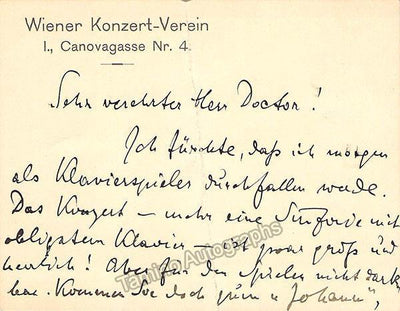 Wiener Konzert-Verein
I., Canovagasse Nr. 4.
Sehr verehrter Herr Doctor!
Ich fürchte, daß ich morgen
als Klavierspieler durchfallen werde.
Das Konzert – mehr eine Sinfonie mit
obligatem Klavier – ist zwar groß und
herrlich! Aber für den Spieler nicht dank-
bar. Kommen Sie doch zum „Johann",
Tamino Autographs